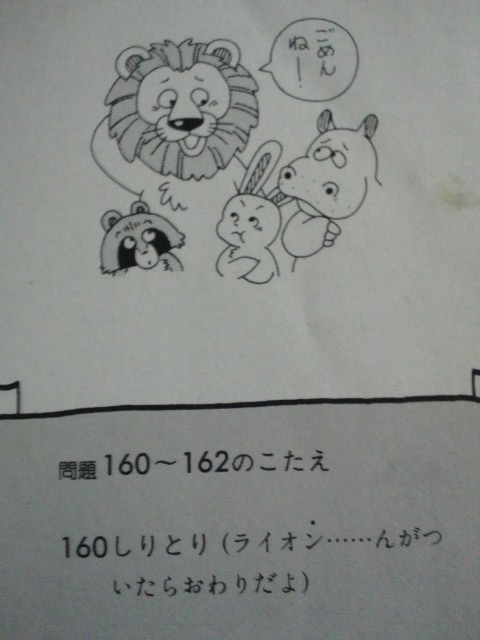 ごめん
ねー!
問題160〜162のこたえ
160しりとり（ライオン……んがつ
いたらおわりだよ）